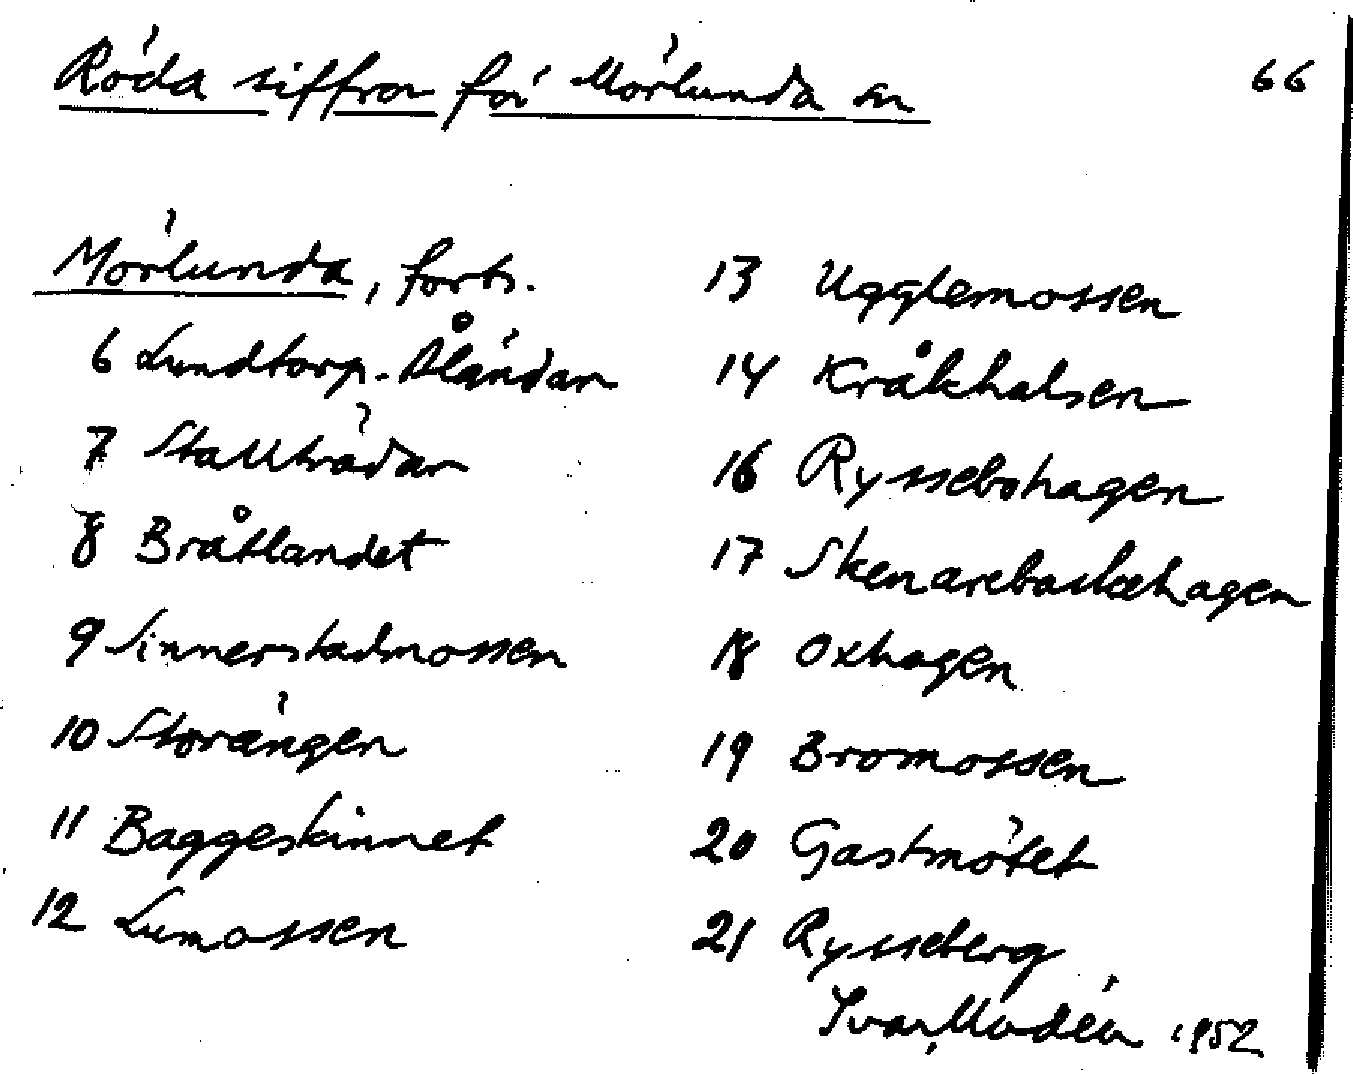 Röda siffror för Mörlunda sn
66
Mörlunda, forts.
6 Lundtorp-Åländar
7 Stallträdar
8 Bråtlandet
9 Sinnerstadmossen
10 Storängen
11 Baggeskinnet
12 Lumossen
13 Ugglemossen
14 Kråkhalsen
16 Ryssebohagen
17 Skenarebackehagen
18 Oxhagen
19 Bromossen
20 Gastmötet
21 Rysseberg
Ivar Modéer 1952